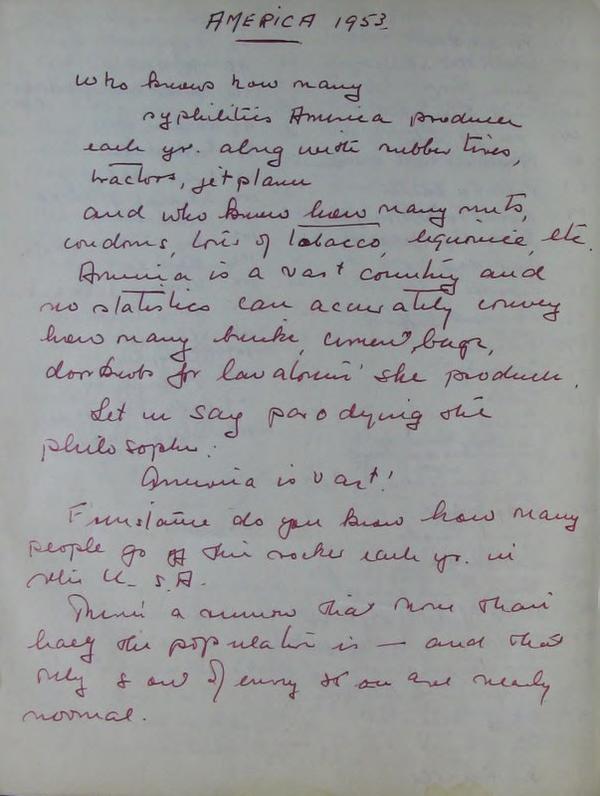 AMERICA 1953.
who knows how many
syphilitics America produces
each yr. along with rubber tires,
tractors, jet planes
and who knows how many nuts,
condoms, tons of tobacco, liquorice, etc.
America is a vast country and
no statistics can accurately convey
how many trucks, cement bags,
doorknobs for lavatories she produces.
Let us say parodying the
philosopher:
America is vast!
F'rinstance do you know how many
people go off their rocker each yr. in
the U.S.A.
There's a rumor that more than
half the population is — and that
only 2 out of every are nearly
normal.